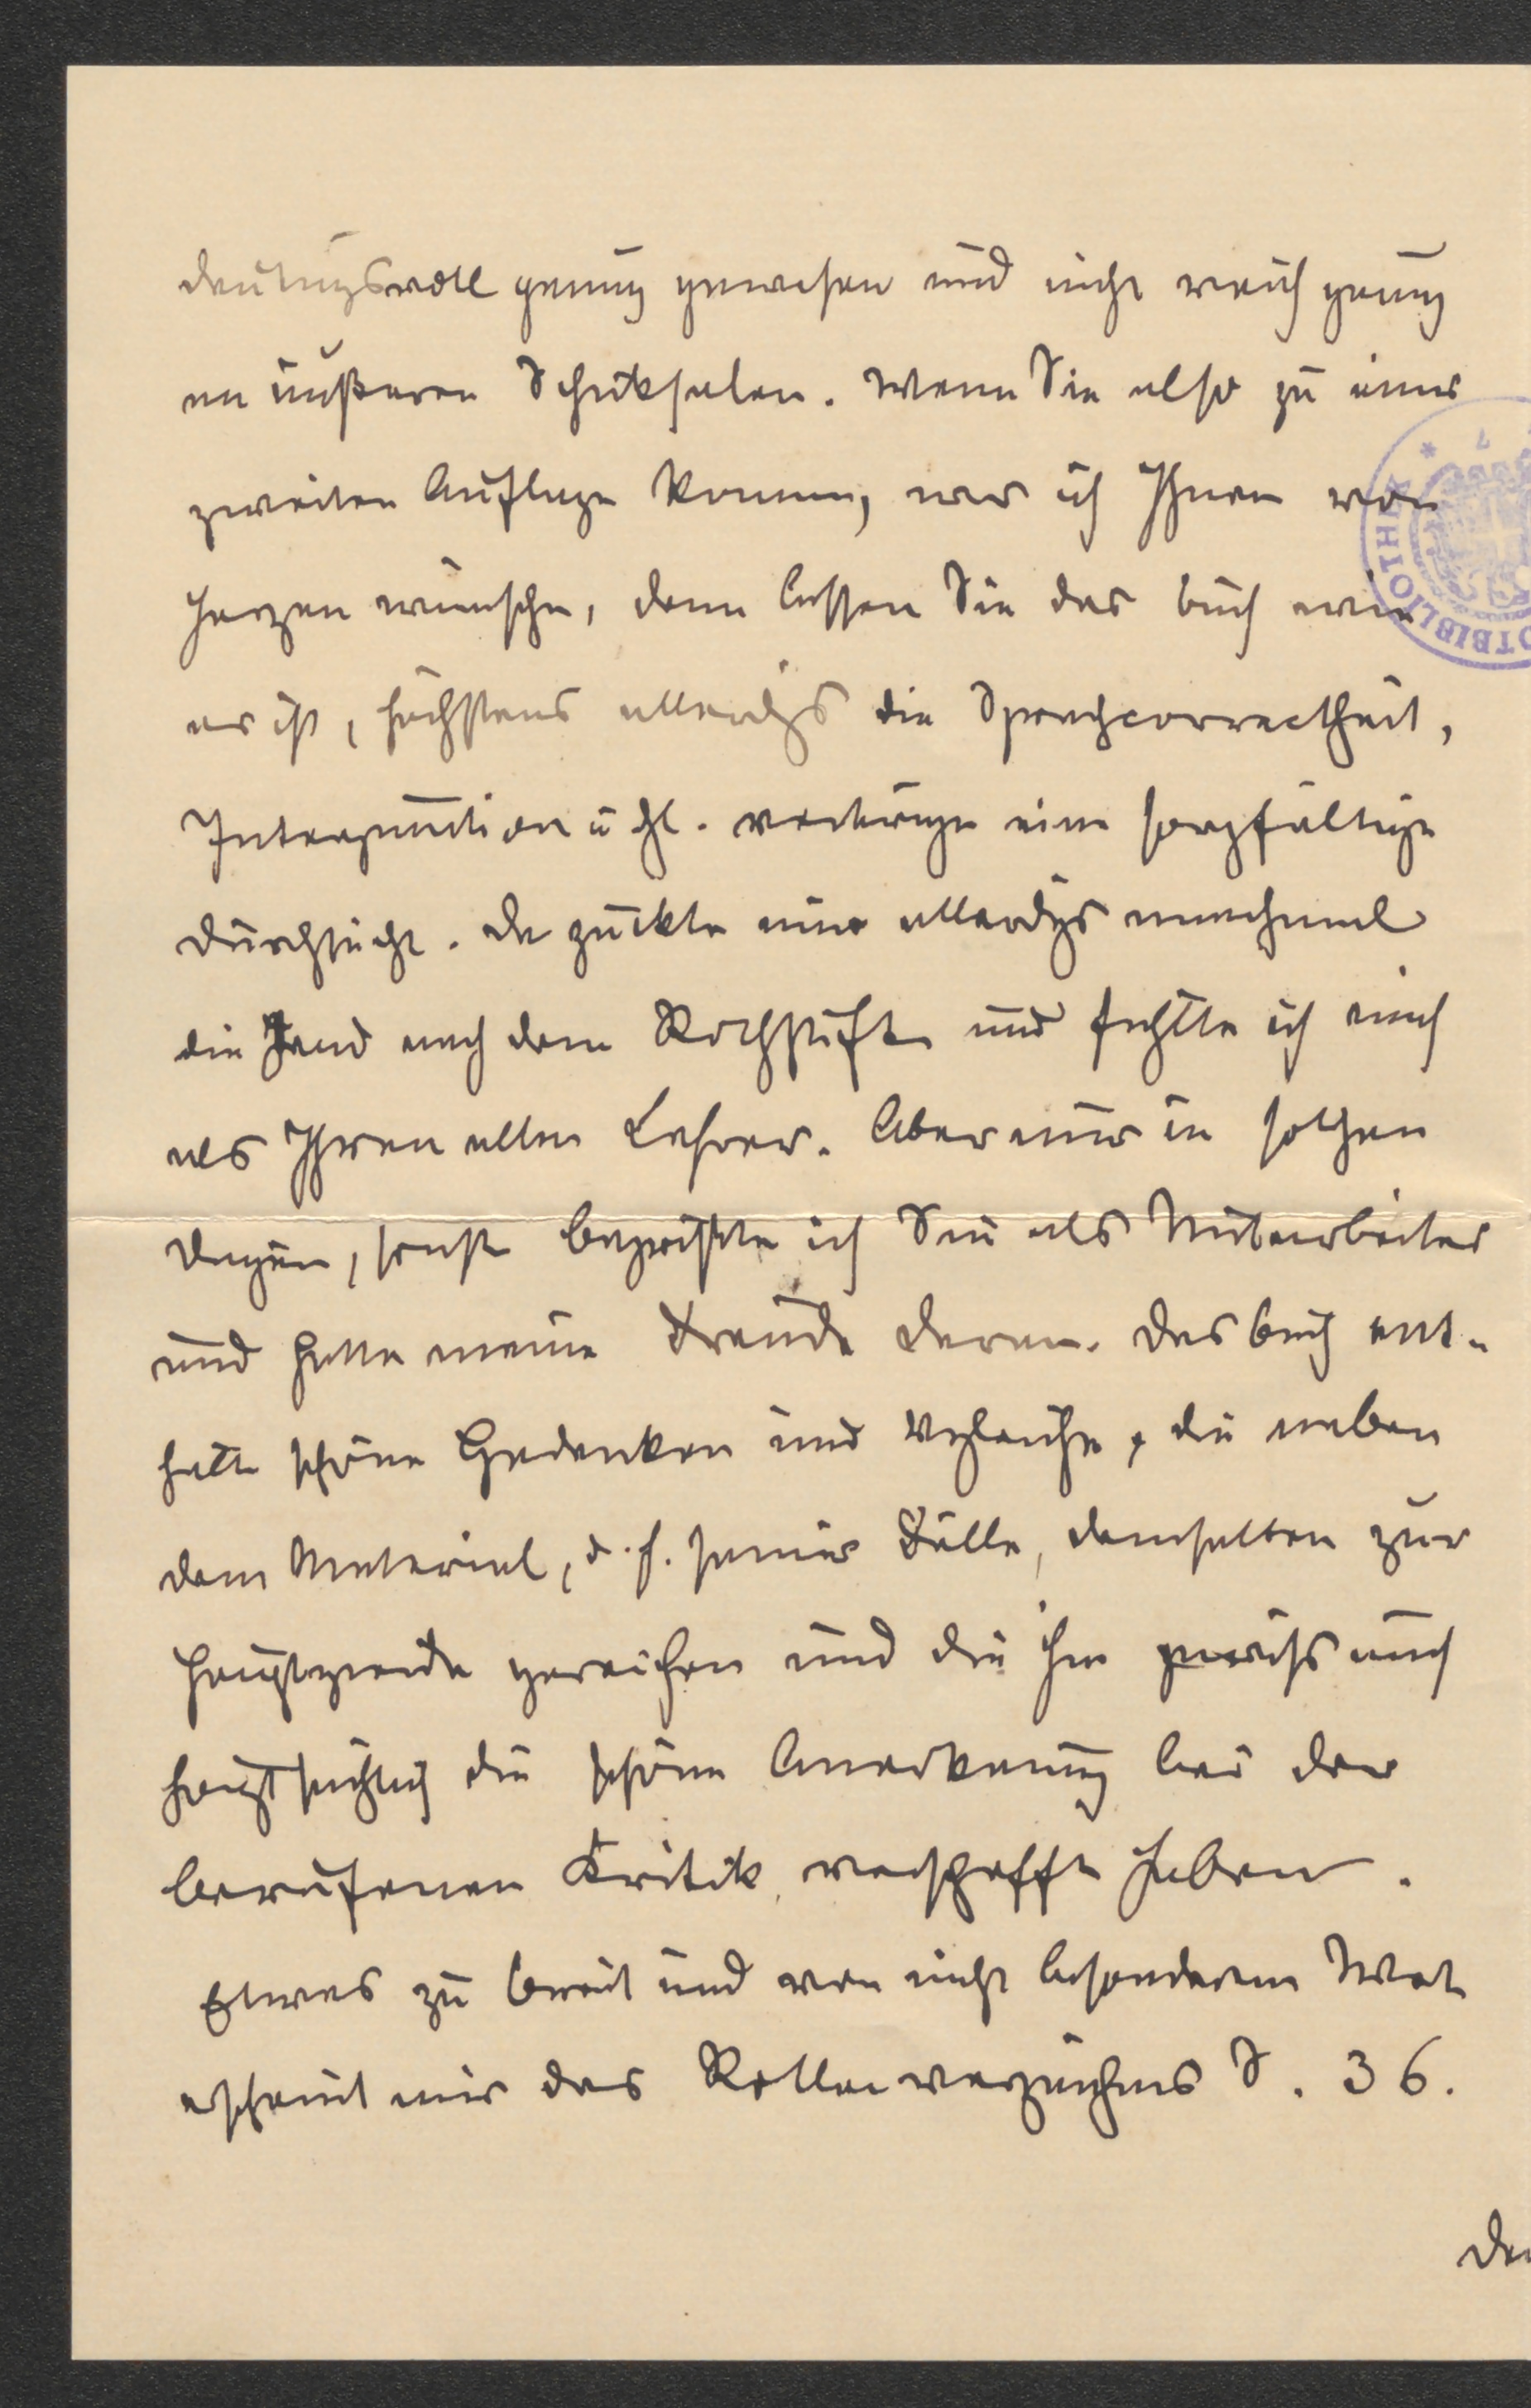 deutungsvoll genug gewesen und nicht reich genug
an äußeren Schicksalen. Wenn Sie also zu einer
zweiten Auflage kommen, was ich Ihnen von
Herzen wünsche, dann lassen Sie das Buch wie
es ist, höchstens allerdgs die Sprachcorrectheit,
Interpunction u dgl. vertrüge eine sorgfältige
Durchsicht. Da zuckte mir allerdgs manchmal
die Hand nach dem Rothstifte und fühlte ich mich
als Ihren alten Lehrer. Aber nur in solchen
Dingen, sonst begrüßte ich Sie als Mitarbeiter
und hatte meine Freude daran. Das Buch ent-
hält schöne Gedanken und Vgleiche, die neben
dem Material, d. h. seiner Fülle, demselben zur
Hauptzierde gereichen und die ihm gewiss auch
hauptsächlich die schöne Anerkennung bei der
berufenen Kritik verschafft haben.
Etwas zu breit und von nicht besonderem Wert
erscheint mir das Rollenverzeichnis S. 36.